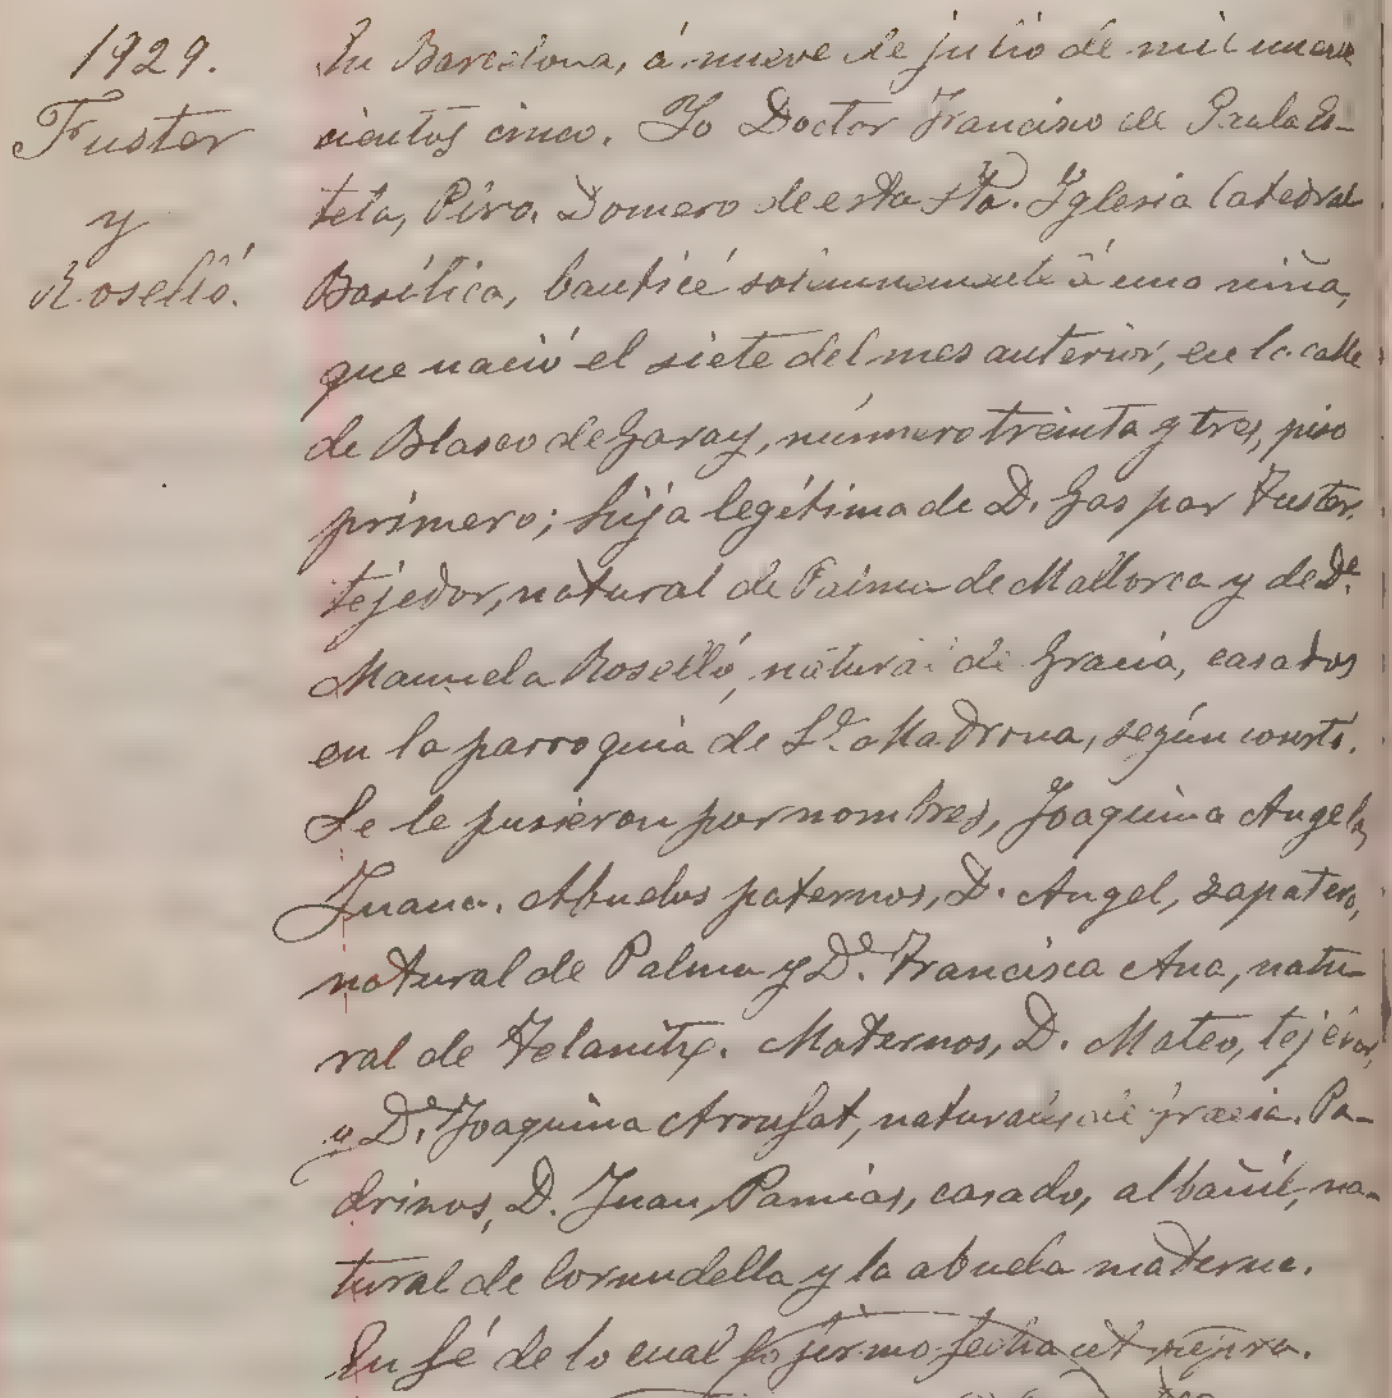 1929.
Fuster
y
Roselló.
En Barcelona, á nueve de julio de mil nueve
cientos cinco. Yo Doctor Francisco de Paula Es-
teta, Pbro. Domero de esta Sta. Iglesia Catedral
Basílica, bauticé solemnemente á una niña,
que nació el siete del mes anterior, en la calle
de Blasco de Garay, número treinta y tres, piso
primero; hija legítima de D. Gaspar Fuster,
tejedor, natural de Palma de Mallorca y de Dª.
Manuela Roselló, natural de Gracia, casados
en la parroquia de Sª. Madrona, según consta.
Se le pusieron por nombres, Joaquina Angela,
Juana. Abuelos paternos, D. Angel, zapatero,
natural de Palma y Dª. Francisca Ana, natu-
ral de Felanitx. Maternos, D. Mateo, tejedor,
y Dª. Joaquina Arrufat, naturales de Gracia. Pa-
drinos, D. Juan Pamias, casado, albañil, na-
tural de Cornudella y la abuela materna.
En fé de lo cual lo firmo fecha ut supra.